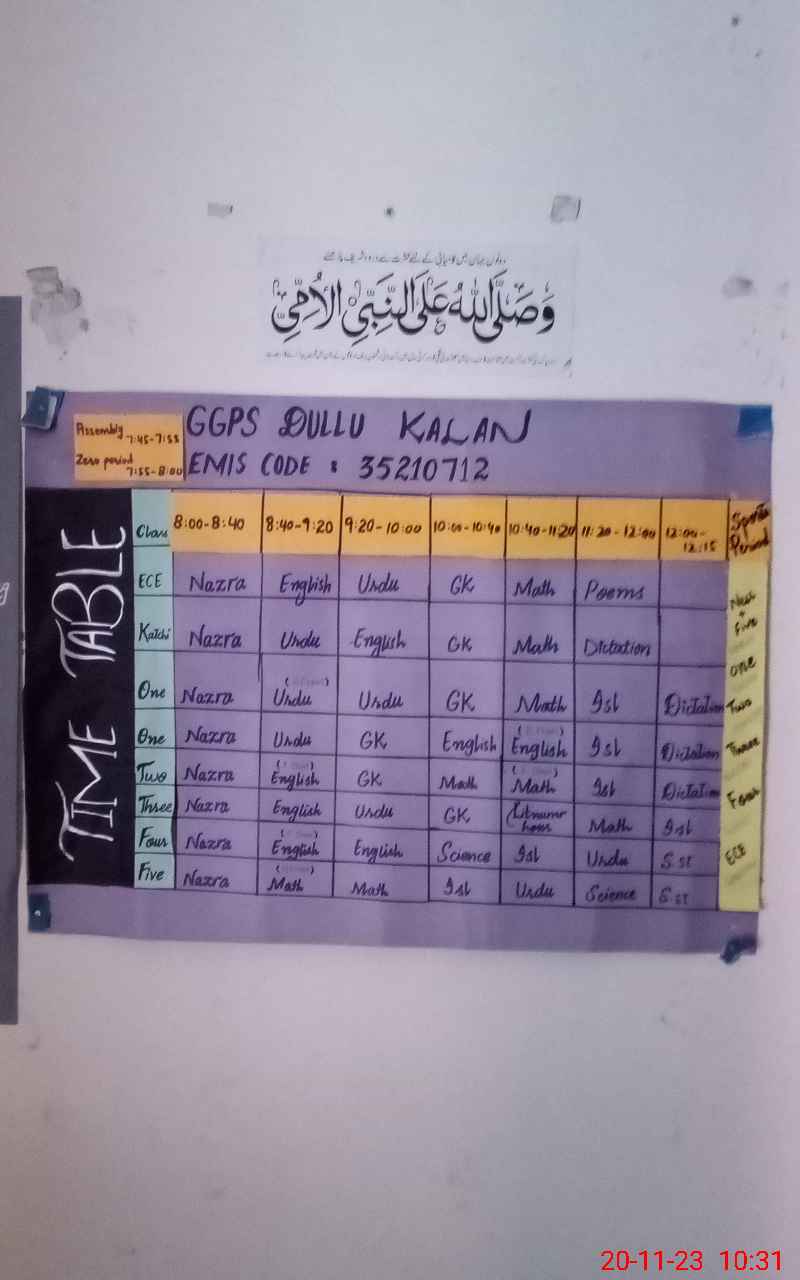 وَصَلَّى اللهُ عَلَى النَّبِيِّ الْاُمِّيِّ
GGPS DULLU KALAN
EMIS CODE : 35210712
Assembly 7:45-7:55
Zero period 7:55-8:00
TIME TABLE
Class 8:00-8:40 8:40-9:20 9:20-10:00 10:00-10:40 10:40-11:20 11:20-12:00 12:00-12:15 Sports Period
ECE Nazra English Urdu GK Math Poems
Katchi Nazra Urdu English GK Math Dictation
One Nazra Urdu Urdu GK Math Isl Dictation
One Nazra Urdu GK English English Isl Dictation
Two Nazra English GK Math Math Isl Dictation
Three Nazra English Urdu GK Math Isl
Four Nazra English English Science Isl Urdu S.st
Five Nazra Math Math Isl Urdu Science S.st
Five
one
Two
Three
Four
ECE
20-11-23 10:31